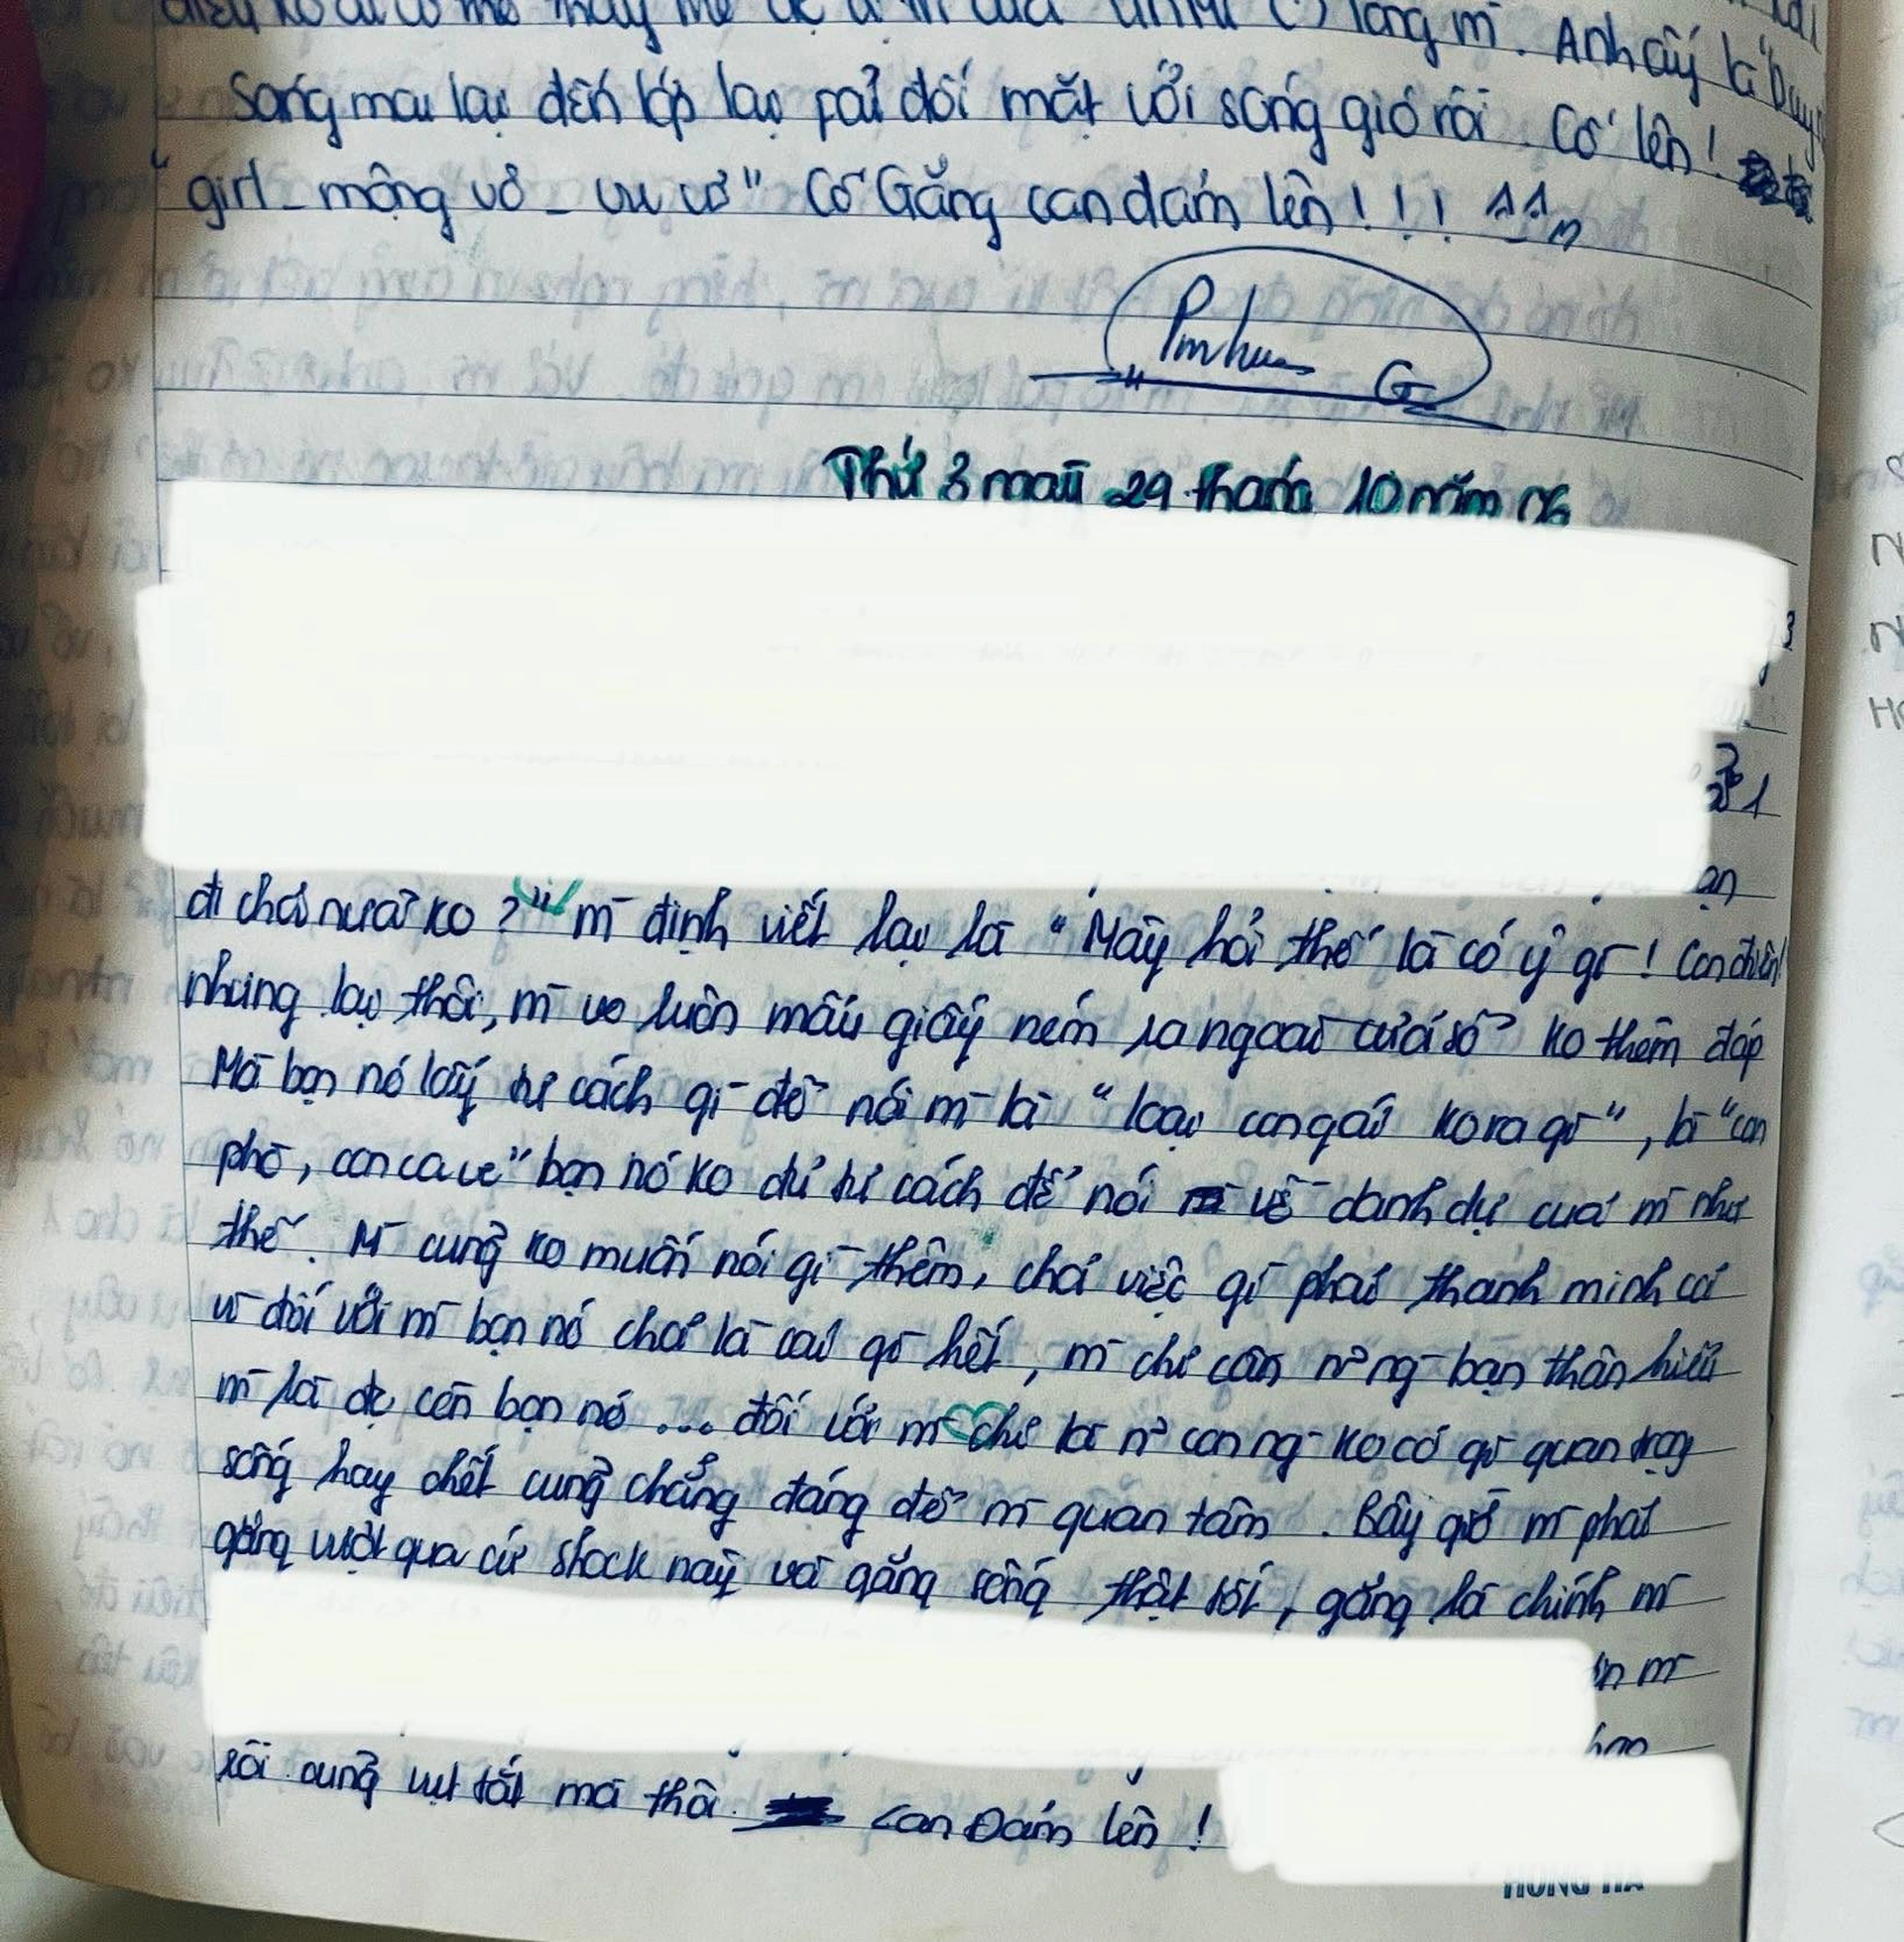 lòng m̄. Anh ấy là "Duy
Sáng mai lại đến lớp lại fải đối mặt với sóng gió rồi. Cố lên!
"girl_mộng vơ_vu vơ" Cố Gắng can đảm lên!!! ^^
G
Thứ 3 ngày 29 tháng 10 năm 06
đi chơi nữa ko?" m̄ định viết lại là "Mày hỏi thế là có ý gì! Con điên!
nhưng lại thôi, m̄ vo luôn mẩu giấy ném ra ngoài cửa sổ ko thèm đáp
Mà bọn nó lấy tư cách gì để nói m̄ là "loại con gái ko ra gì", là "con
phò, con cave" bọn nó ko đủ tư cách để nói về danh dự của m̄ như
thế. M̄ cũng ko muốn nói gì thêm, chả việc gì phải thanh minh cả
vì đối với m̄ bọn nó chả là cái gì hết, m̄ chỉ cần n~ ng` bạn thân hiểu
m̄ là đc còn bọn nó ... đối với m̄ chỉ là n~ con ng` ko có gì quan trọng
sống hay chết cũng chẳng đáng để m̄ quan tâm. Bây giờ m̄ phải
gắng vượt qua cú shock này và gắng sống thật tốt, gắng là chính m̄
m̄
rồi cũng vụt tắt mà thôi. Can Đảm lên!
HỒNG HÀ